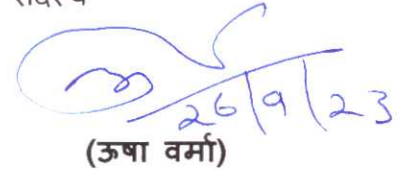 26/9/23
(ऊषा वर्मा)